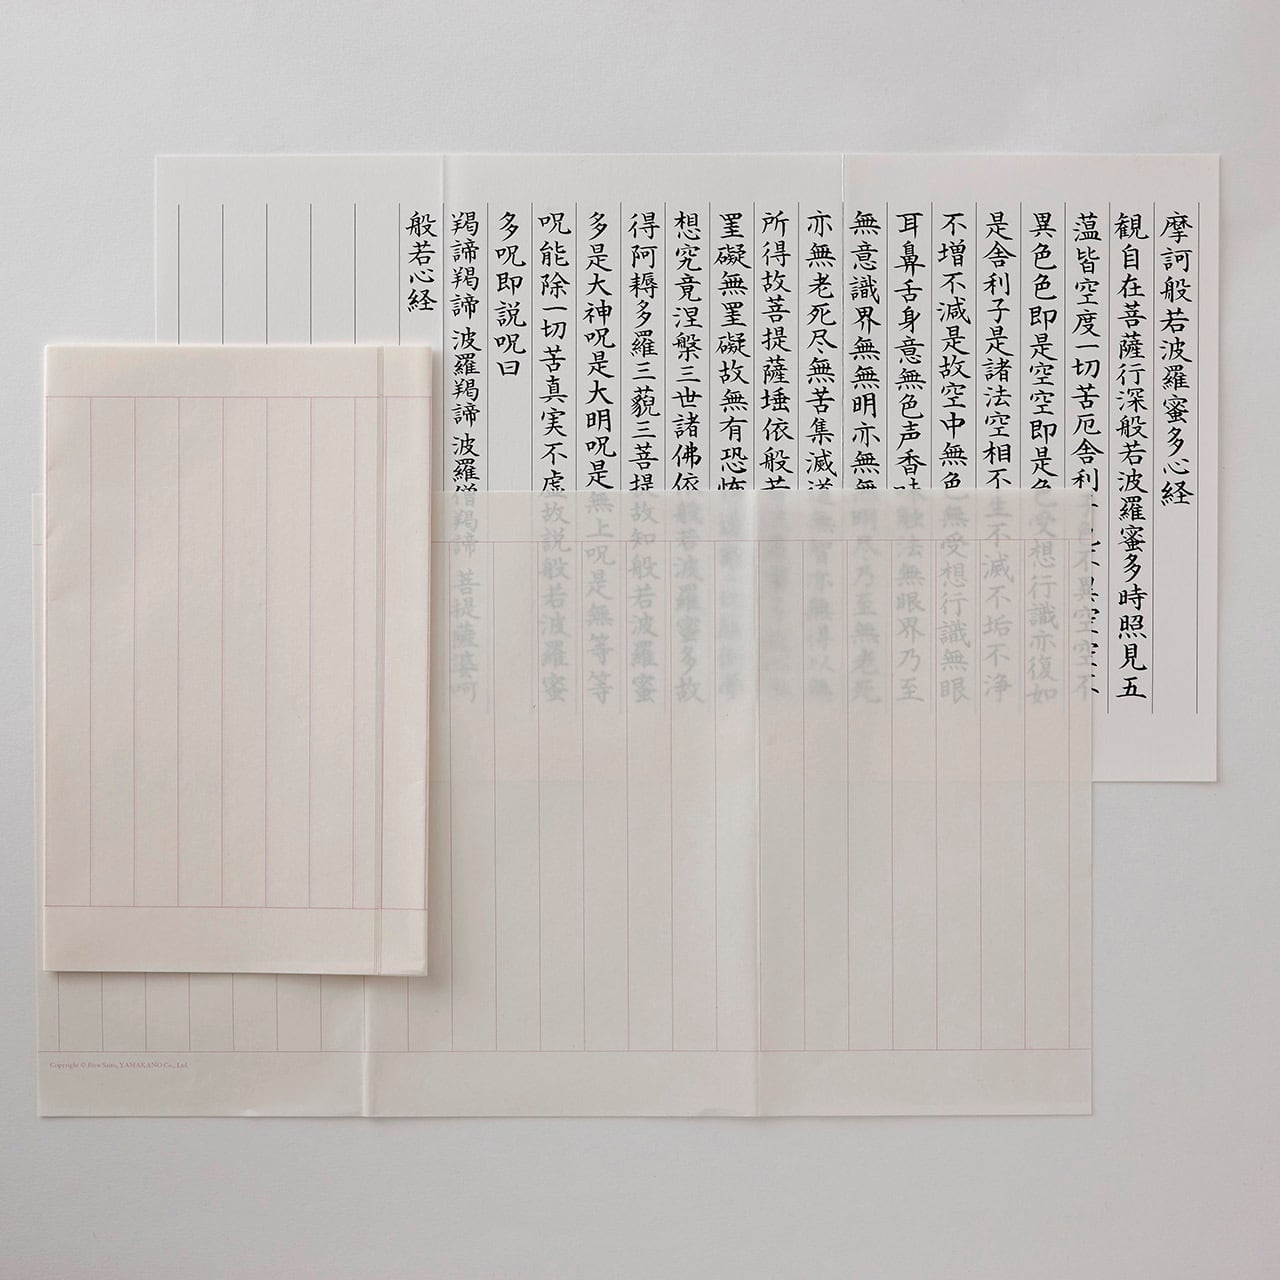 摩訶般若波羅蜜多心経
観自在菩薩行深般若波羅蜜多時照見五
薀皆空度一切苦厄舎利子色不異空空不
異色色即是空空即是色受想行識亦復如
是舎利子是諸法空相不生不滅不垢不浄
不増不減是故空中無色無受想行識無眼
耳鼻舌身意無色声香味触法無眼界乃至
無意識界無無明亦無無明尽乃至無老死
亦無老死尽無苦集滅道無智亦無得以無
所得故菩提薩埵依般若
罣礙無罣礙故無有恐怖
想究竟涅槃三世諸佛依般若波羅蜜多故
得阿耨多羅三藐三菩提故知般若波羅蜜
多是大神呪是大明呪是無上呪是無等等
呪能除一切苦真実不虚故説般若波羅蜜
多呪即説呪曰
羯諦羯諦 波羅羯諦 波羅僧羯諦 菩提薩婆訶
般若心経
Copyright © Saito, YAMAKANO Co., Ltd.